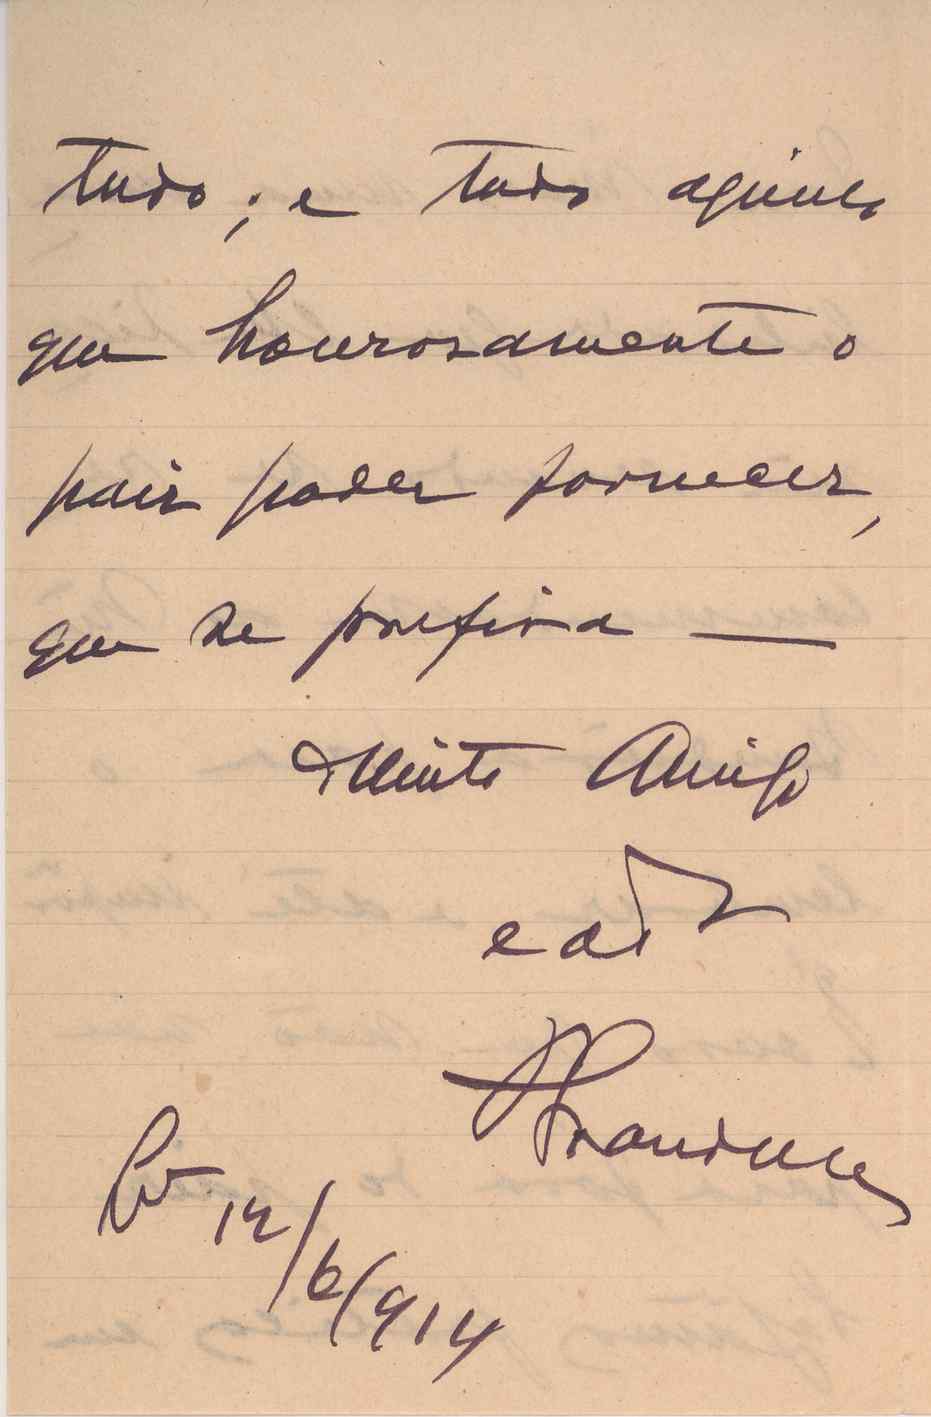 tudo; e tudo aquillo
que honrosamente o
paiz poder fornecer,
que se prefira —
Muito Amigo
e
12/6/914